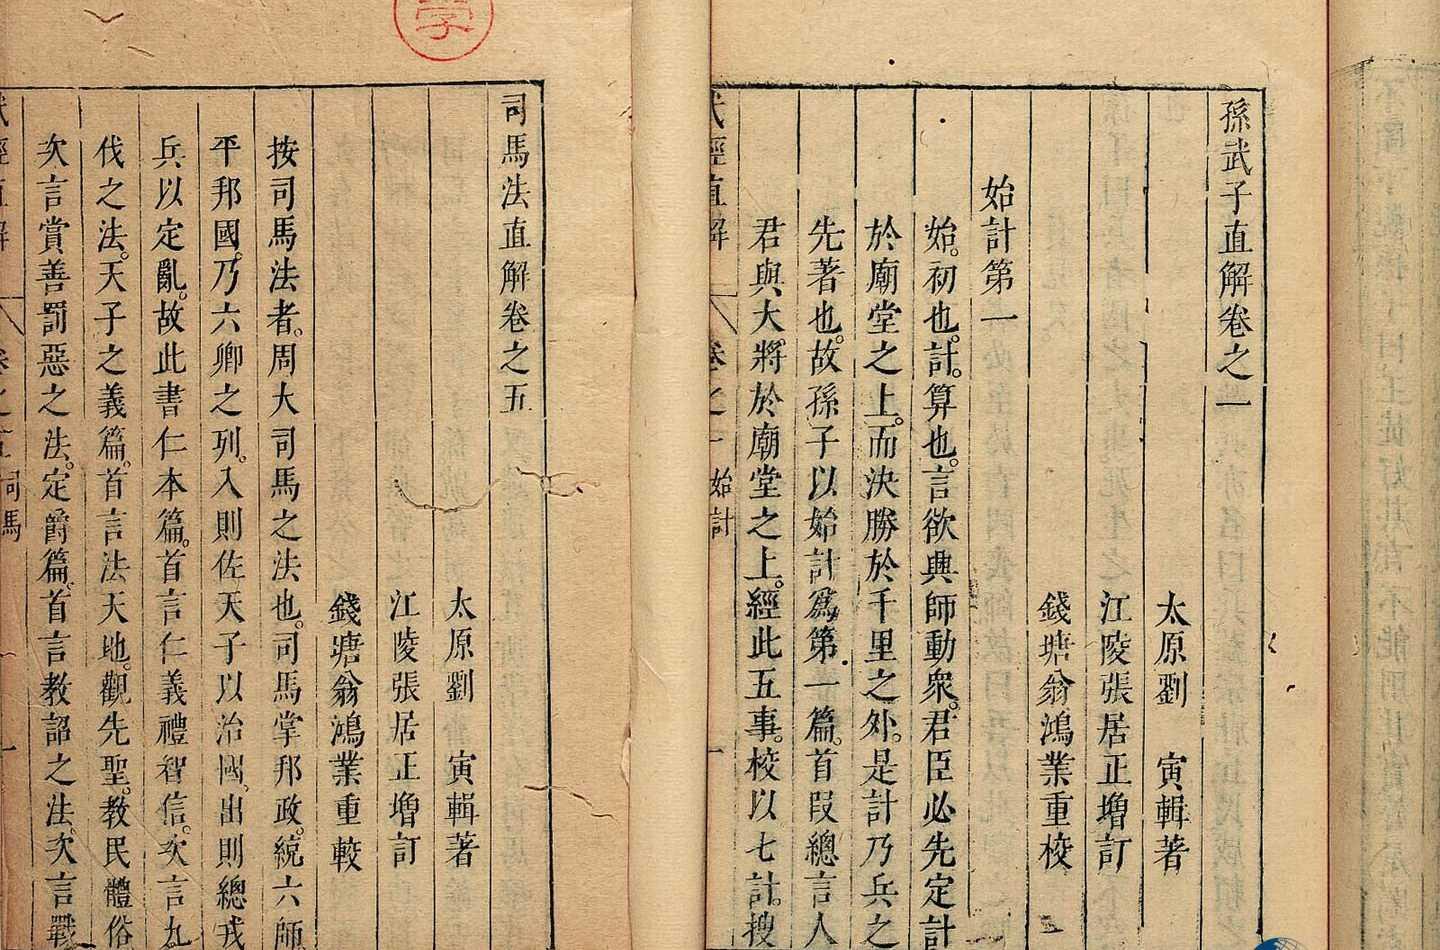 孫武子直解卷之一
太原劉　寅輯著
江陵張居正增訂
錢塘翁鴻業重校
始計第一
始。初也。計。算也。言欲興師動衆。君臣必先定計
於廟堂之上。而決勝於千里之外。是計乃兵之
先著也。故孫子以始計爲第一篇。首段總言人
君與大將於廟堂之上。經此五事。校以七計。搜
武經直解　卷之一　始計　一
學
司馬法直解卷之五
太原劉　寅輯著
江陵張居正增訂
錢塘翁鴻業重較
按司馬法者。周大司馬之法也。司馬掌邦政。統六師。
平邦國。乃六卿之列。入則佐天子以治國。出則總戎
兵以定亂。故此書仁本篇。首言仁義禮智信。次言九
伐之法。天子之義篇。首言法天地。觀先聖。教民體俗
次言賞善罰惡之法。定爵篇。首言教詔之法。次言戰
武經直解　卷之五　司馬　一